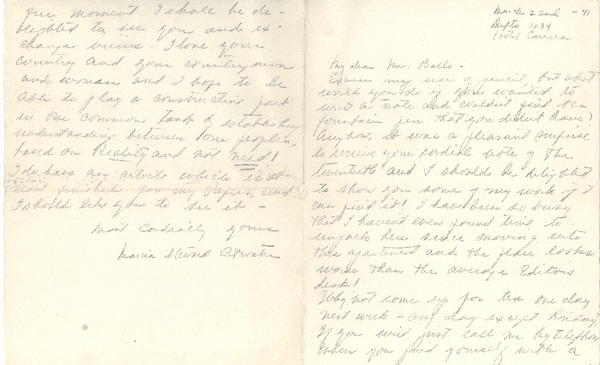 March 22nd -41
Depto 1034
Hotel Carrera
My dear Mr. Ballo -
Excuse my use of pencil, but what
would you do if you wanted to
write a note and couldn't find the
fountain pen that you didn't have?
Anyhow, it was a pleasant surprise
to receive your cordial note of the
twentieth and I should be delighted
to show you some of my work if I
can find it! I have been so busy
that I haven't even found time to
unpack here since moving into
this apartment and the floor looks
worse than the average Editors
desk!
Why not come up for tea one day
next week - any day except Friday.
If you will just call me by telephone
when you find yourself with a
free moment I shall be de-
lighted to see you and ex-
change views. I love your
country and your countrymen
and women and I hope to be
able to play a constructive part
in our common task of establishing
understanding between our peoples,
based on Reality and not need!
I do have an article which is al-
most finished for my papers, and
I should like you to see it -
Most Cordially yours
Marcia